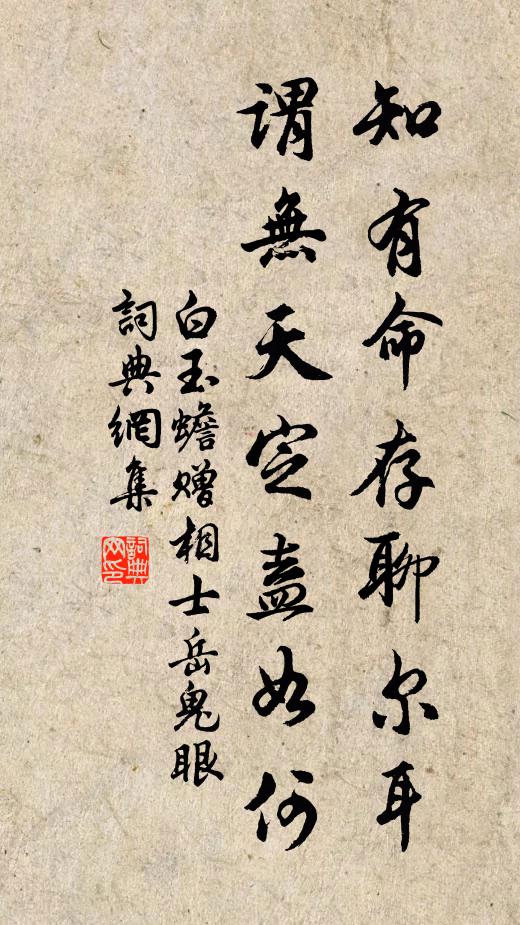 知有命存聊尔耳
謂無天定盍如何
白玉蟾赠相士岳鬼眼
詞典網集
詞典网印